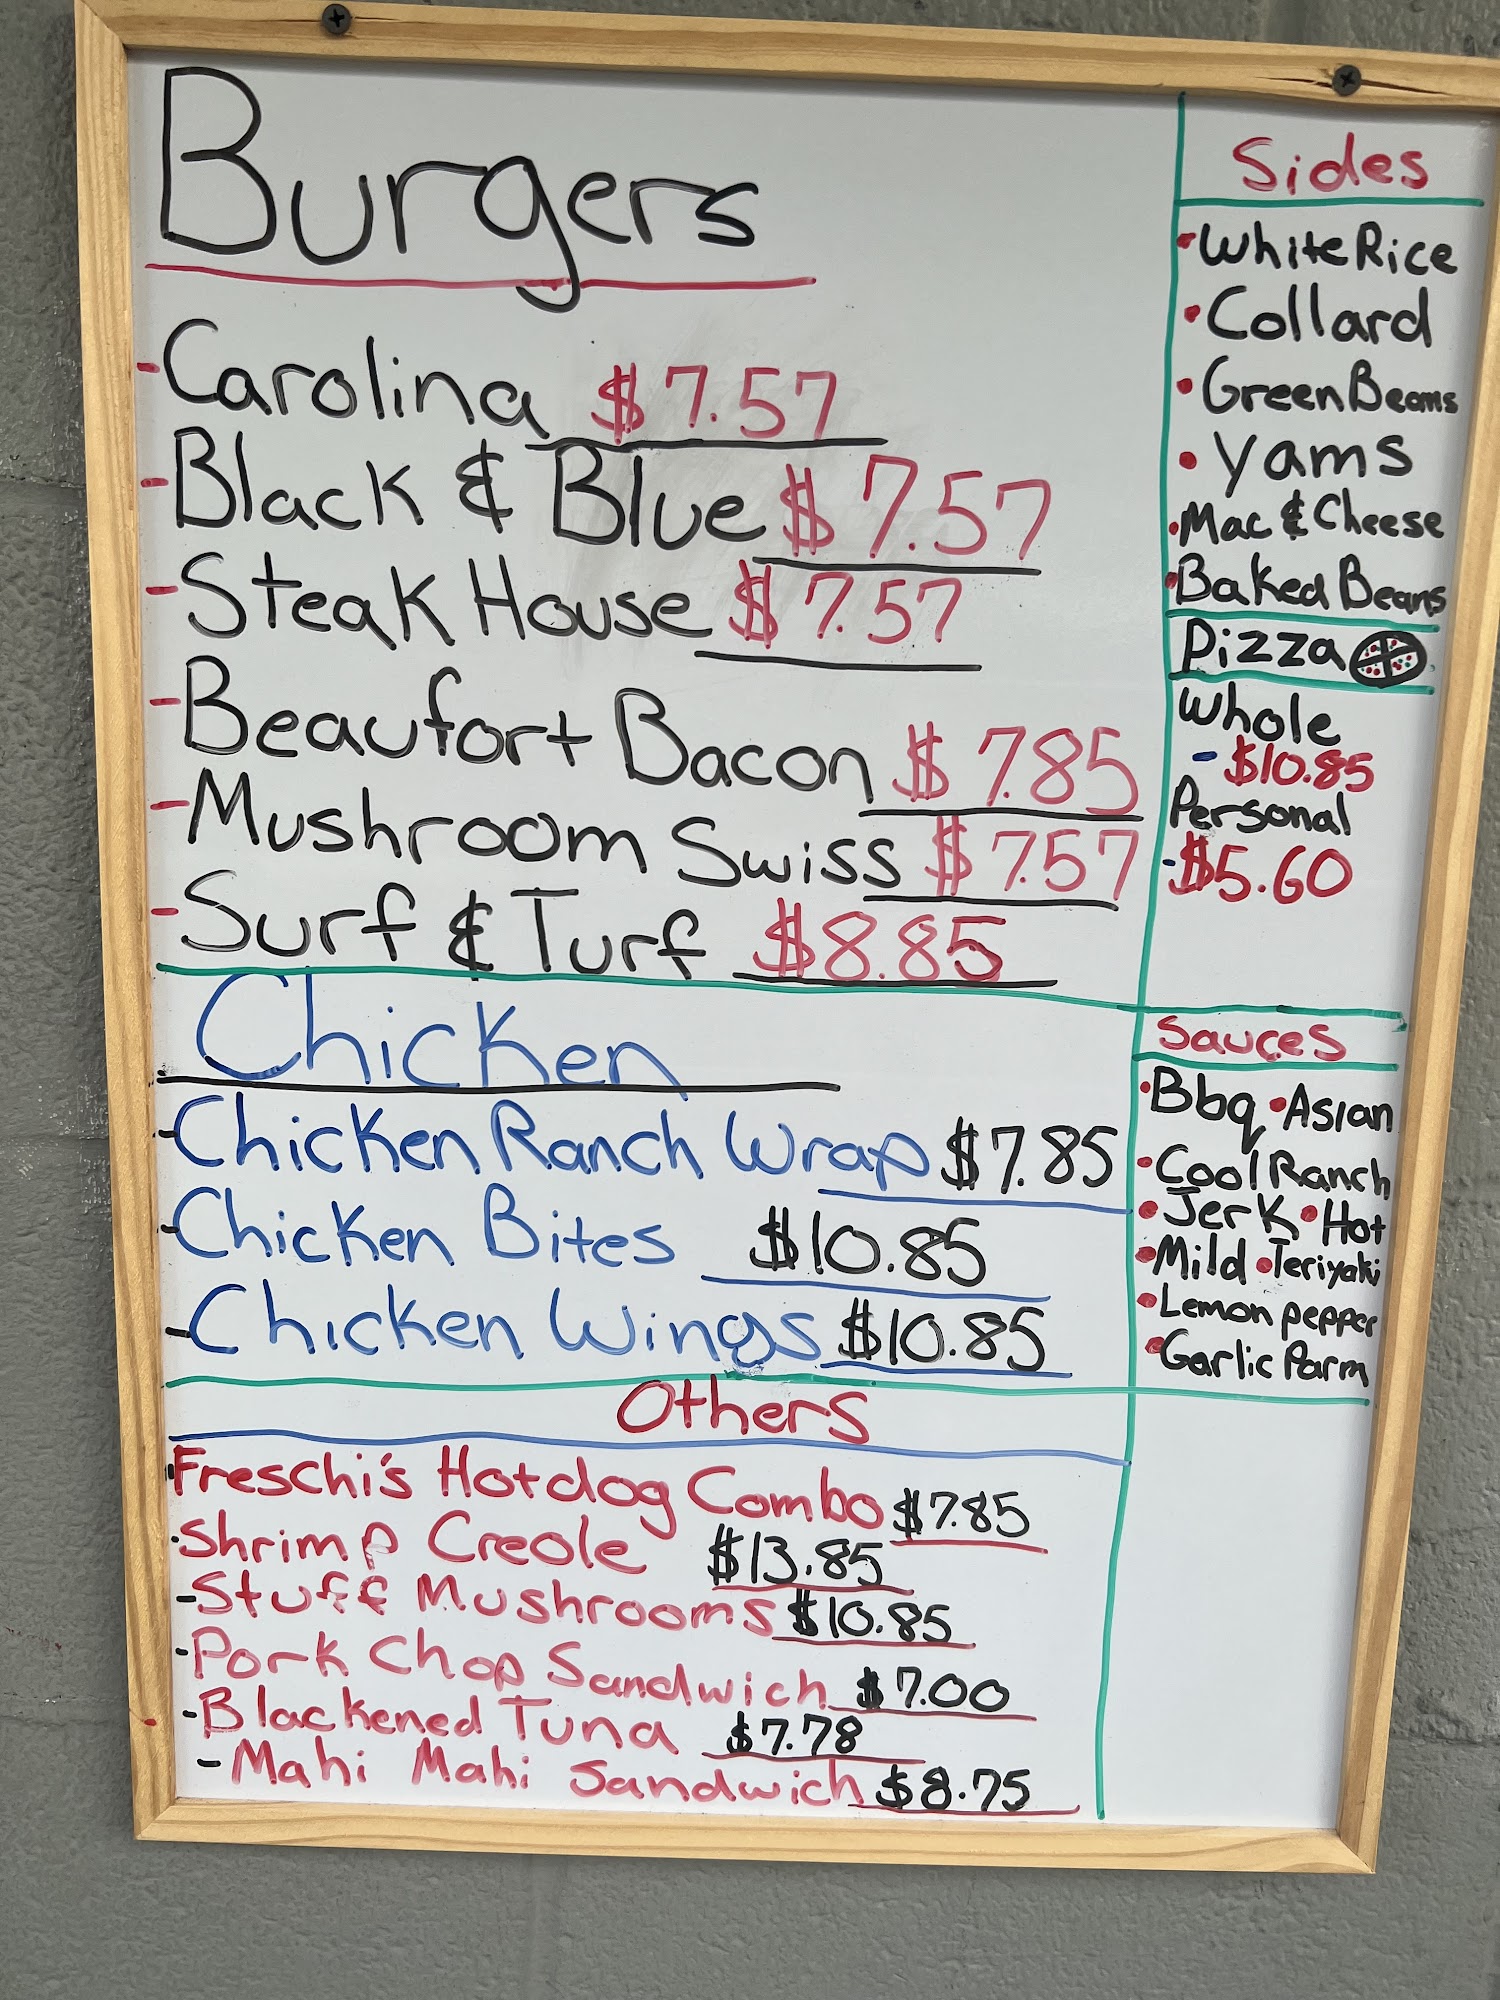 Burgers
-Carolina $7.57
-Black & Blue $7.57
-Steak House $7.57
-Beaufort Bacon $7.85
-Mushroom Swiss $7.57
-Surf & Turf $8.85
Chicken
-Chicken Ranch Wrap $7.85
-Chicken Bites $10.85
-Chicken Wings $10.85
Others
-Freschi's Hotdog Combo $7.85
-Shrimp Creole $13.85
-Stuff Mushrooms $10.85
-Pork Chop Sandwich $7.00
-Blackened Tuna $7.78
-Mahi Mahi Sandwich $8.75
Sides
•White Rice
•Collard
•Green Beans
•Yams
•Mac & Cheese
•Baked Beans
Pizza
Whole
-$10.85
Personal
-$5.60
Sauces
•Bbq •Asian
•Cool Ranch
•Jerk •Hot
•Mild •Teriyaki
•Lemon pepper
•Garlic Parm